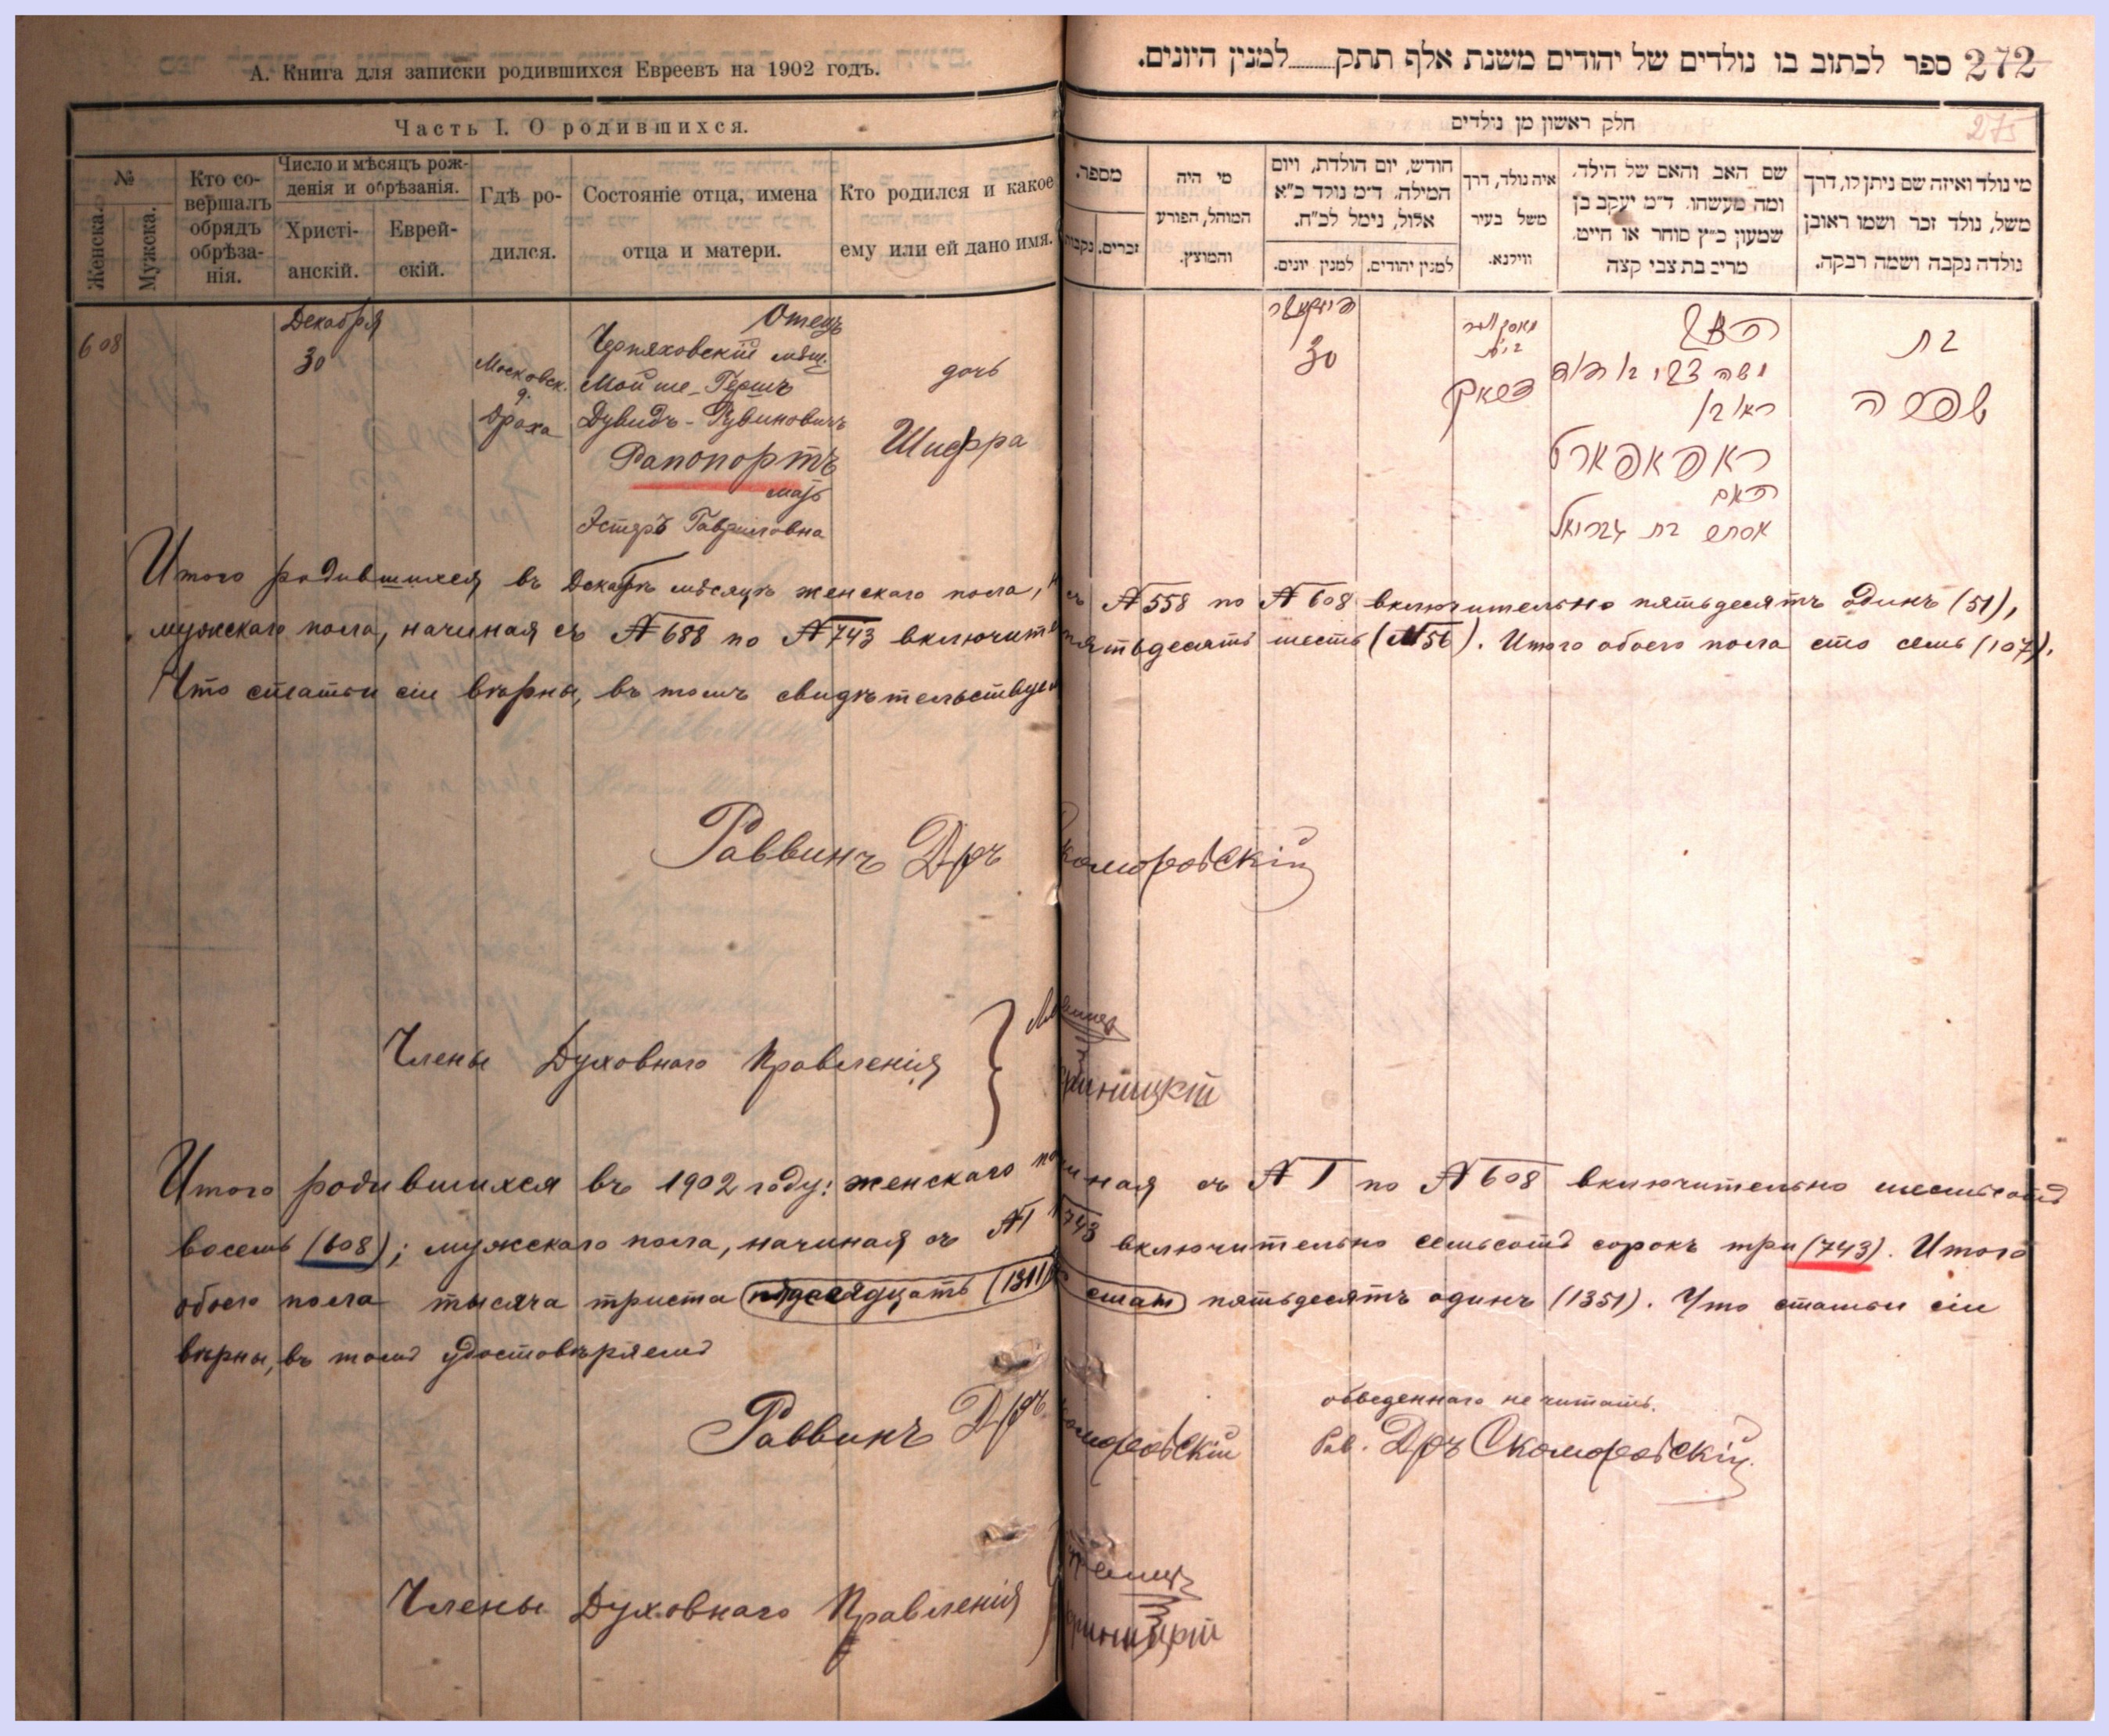 А. Книга для записки родившихся Евреевъ на 1902 годъ.
Часть I. О родившихся.
№
Женска.
Мужска.
Кто со-
вершалъ
обрядъ
обрѣза-
нія.
Число и мѣсяцъ рож-
денія и обрѣзанія.
Христі-
анскій.
Еврей-
скій.
Гдѣ ро-
дился.
Состояніе отца, имена
отца и матери.
Кто родился и какое
ему или ей дано имя.
608
Декабря
30
Московск.
д.
Драха
Отецъ
Черняховскій мѣщ.
Мойше-Гершъ
Дувидъ-Рувиновичъ
Рапопортъ
мать
Эстеръ Гавриловна
дочь
Шифра
272 ספר לכתוב בו נולדים של יהודים משנת אלף תתק למנין היונים.
חלק ראשון מן נולדים
275
מספר.
זכרים.
נקבות
מי היה
המוהל, הפורע
והמוצץ.
חודש, יום הולדת, ויום
המילה. ד״מ נולד כ״א
אלול, נימל לכ״ח.
למנין יהודים.
למנין יונים.
איה נולד, דרך
משל בעיר
ווילנא.
שם האב והאם של הילד,
ומה מעשהו. ד״מ יעקב בן
שמעון כ״ץ סוחר או חייט.
מרים בת צבי קצה
מי נולד ואיזה שם ניתן לו, דרך
משל, נולד זכר ושמו ראובן
נולדה נקבה ושמה רבקה.
30
האב
ראובן
ראפאפארט
האם
אסתר בת גבריאל
בת
שפרה
Итого родившихся въ Декабрѣ мѣсяцѣ женскаго пола, съ №558 по №608 включительно пятьдесятъ одинъ (51),
мужскаго пола, начиная съ №688 по №743 включите пятьдесятъ шесть (№56). Итого обоего пола сто семь (107).
Что статьи сіи вѣрны, въ томъ свидѣтельствуем
Раввинъ Дръ Скоморовскій
Члены Духовнаго Правленія
Итого родившихся въ 1902 году: женскаго по иная съ №1 по №608 включительно шестьсотъ
восемь (608); мужскаго пола, начиная съ №1 743 включительно семьсотъ сорокъ три (743). Итого
обоего пола тысяча триста (1311) пятьдесятъ одинъ (1351). Что статьи сіи
вѣрны, въ томъ удостовѣряемъ
Раввинъ Дръ Скоморовскій
обведеннаго не читать.
Рав. Дръ Скоморовскій.
Члены Духовнаго Правленія